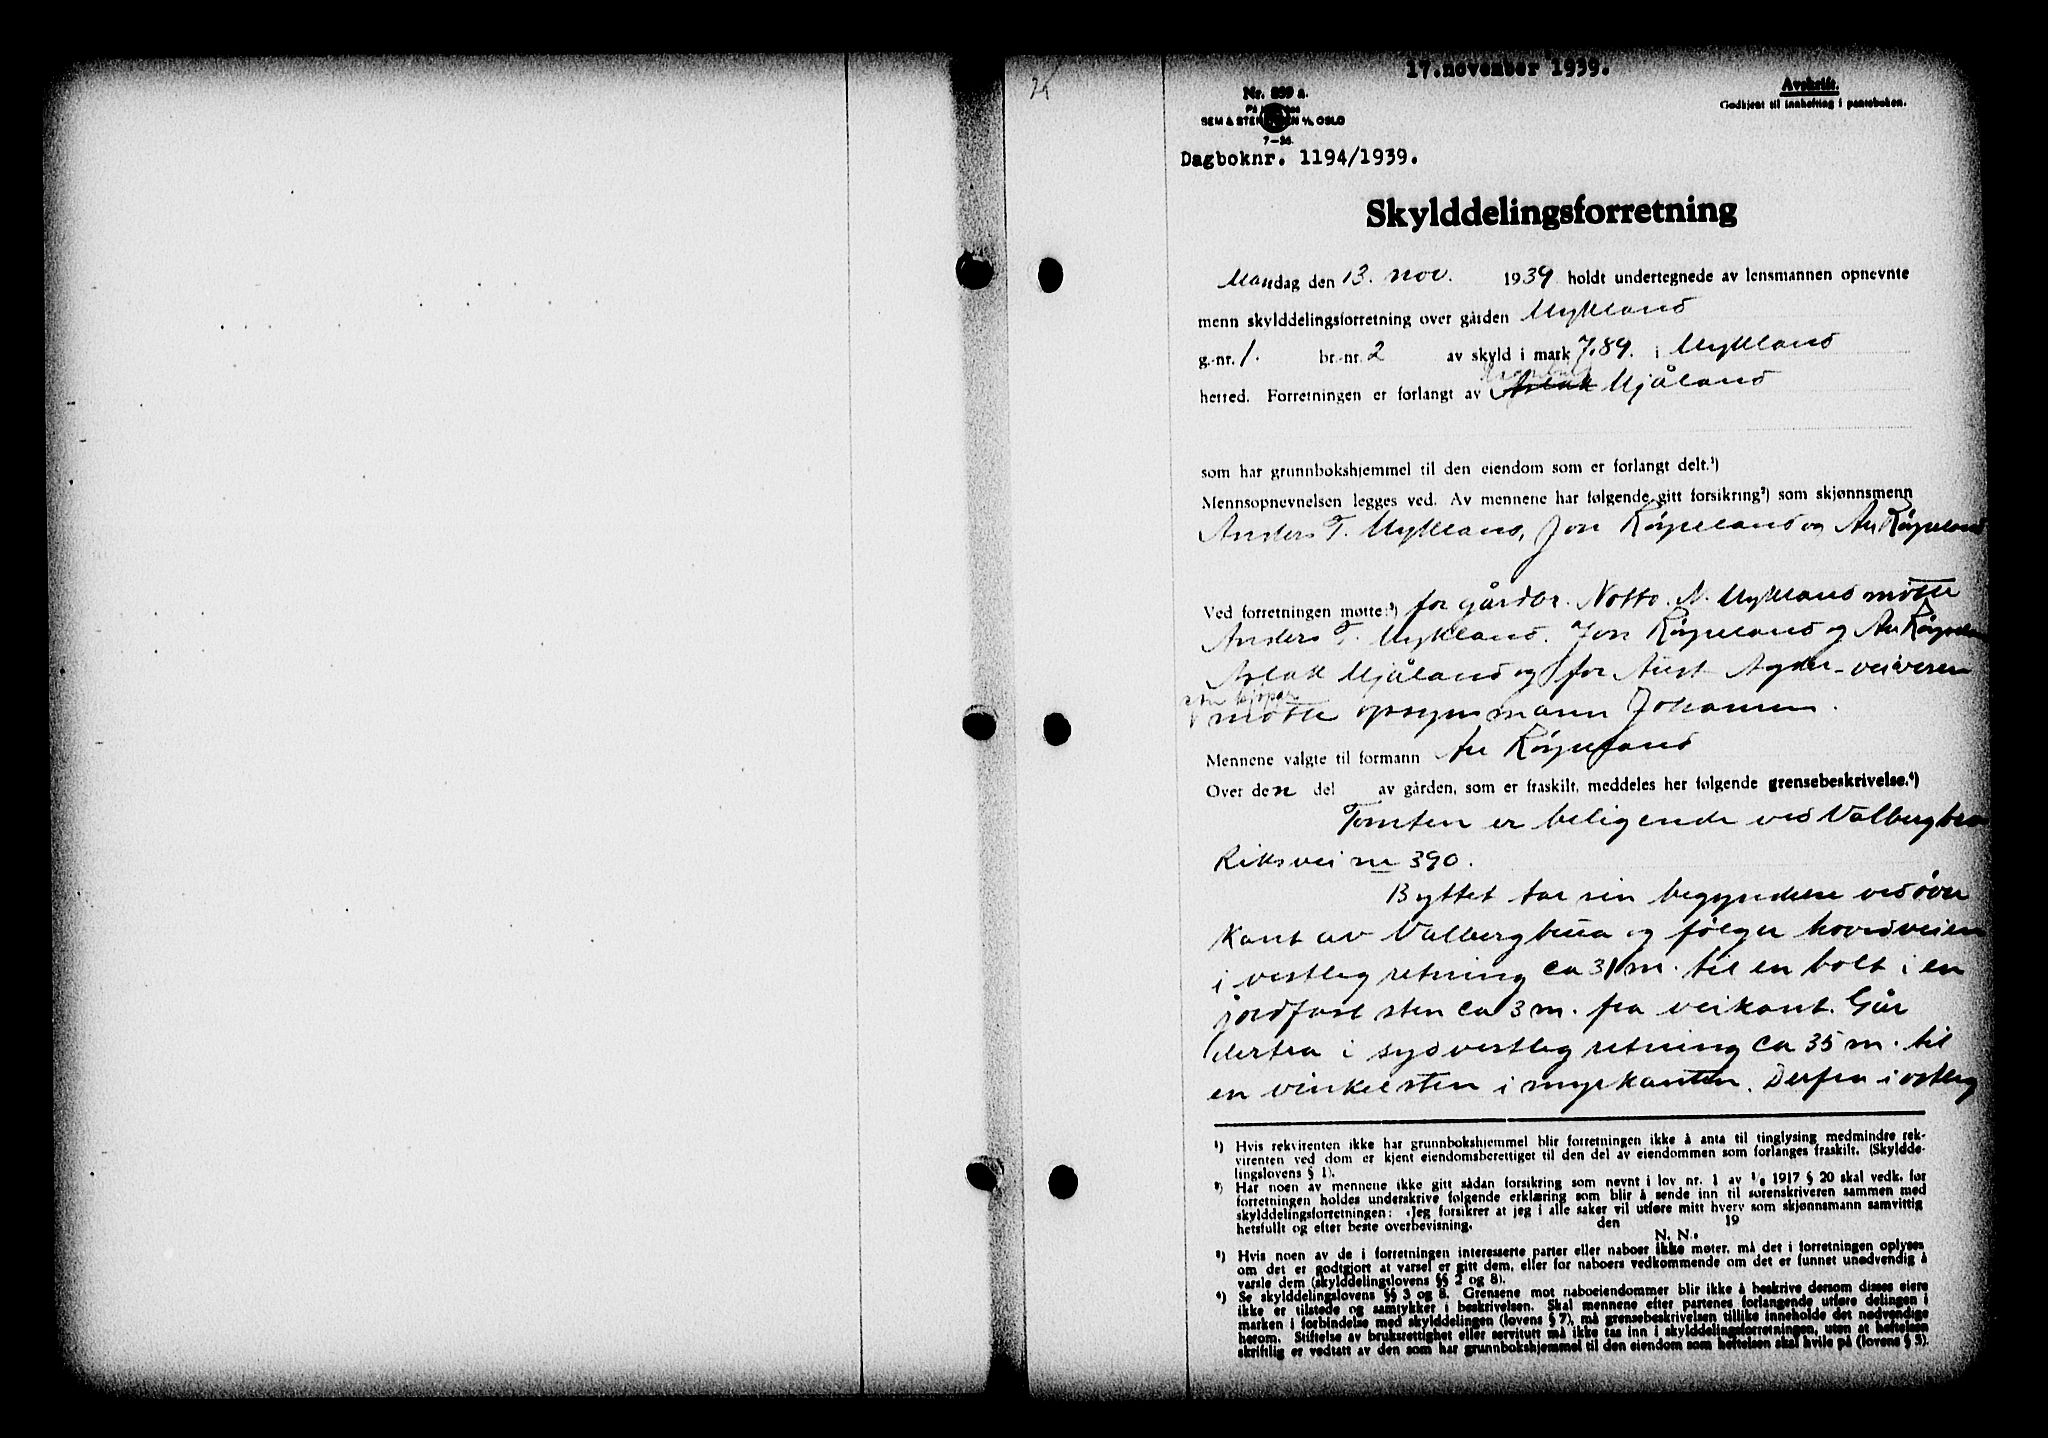 17.november 1939.
Avskrift.
Nr. 899 a.
Godkjent til innhefting i panteboken.
OSLO
7-36.
Dagboknr. 1194/1939.
Skylddelingsforretning
Mandag den 13. nov. 1939 holdt undertegnede av lensmannen opnevnte
menn skylddelingsforretning over gården Mykland
g.-nr. 1. br.-nr. 2 av skyld i mark 7.89. i Mykland
herred. Forretningen er forlangt av Aslak Mjåland
som har grunnbokshjemmel til den eiendom som er forlangt delt.¹)
Mennsopnevnelsen legges ved. Av mennene har følgende gitt forsikring²) som skjønnsmenn
Anders T. Mykland, Jon Røyneland og An Røyneland
Ved forretningen møtte:³) for gårdbr. Notto. N. Mykland møtte
Anders T. Mykland. Jon Røyneland og An Røyneland
Aslak Mjåland og for Aust Agder veivesen
som kjøper
møtte opsynsmann Johansen.
Mennene valgte til formann An Røyneland
Over den del av gården, som er fraskilt, meddeles her følgende grensebeskrivelse.⁴)
Tomten er beligende ved Valbergbua
Riksvei nr 390.
Byttet tar sin begyndelse ved øvre
kant av Valbergbua og følger hovedveien
i vestleg retning ca 31 m. til en bolt i en
jordfast sten ca 3 m. fra veikant. Går
derfra i sydvestleg retning ca 35 m. til
en vinkelsten i myrkanten. Derfra i østleg
¹) Hvis rekvirenten ikke har grunnbokshjemmel blir forretningen ikke å anta til tinglysing medmindre rek-
virenten ved dom er kjent eiendomsberettiget til den del av eiendommen som forlanges fraskilt. (Skyldde-
lingslovens § 1).
²) Har noen av mennene ikke gitt sådan forsikring som nevnt i lov nr. 1 av 1/6 1917 § 20 skal vedk. før
forretningen holdes underskrive følgende erklæring som blir å sende inn til sorenskriveren sammen med
skylddelingsforretningen: «Jeg forsikrer at jeg i alle saker vil utføre mitt hverv som skjønnsmann samvittig
hetsfullt og efter beste overbevisning. den 19
N. N.»
³) Hvis noen av de i forretningen interesserte parter eller naboer ikke møter, må det i forretningen oplyses
om det er godtgjort at varsel er gitt dem, eller for naboers vedkommende om det er funnet unødvendig å
varsle dem (skylddelingslovens §§ 2 og 8).
⁴) Se skylddelingslovens §§ 3 og 8. Grensene mot naboeiendommer blir ikke å beskrive dersom disses eiere
ikke er tilstede og samtykker i beskrivelsen. Skal mennene efter partenes forlangende utføre delingen i
marken i forbindelse med skylddelingen (lovens § 7), må grensebeskrivelsen tillike inneholde det nødvendige
herom. Stiftelse av bruksrettighet eller servitutt må ikke tas inn i skylddelingsforretningen, uten at heftelsen
skriftlig er vedtatt av den som har grunnbokshjemmel til den eiendom som heftelsen skal hvile på (lovens § 5).